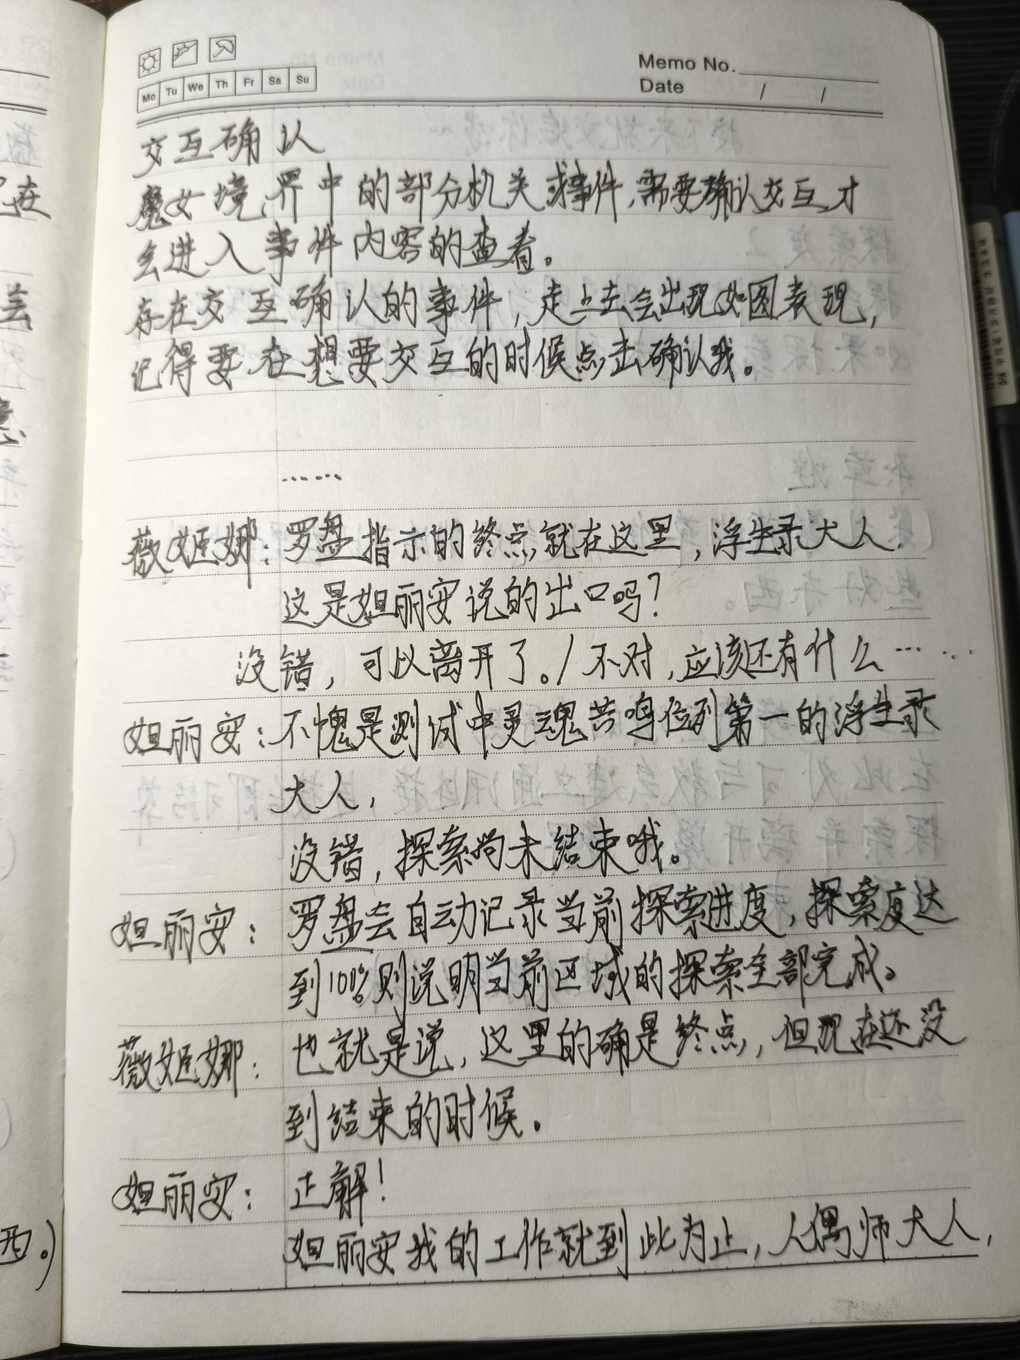 Memo No.
Mo Tu We Th Fr Sa Su
Date / /
交互确认
魔女境界中的部分机关或事件,需要确认交互才
会进入事件内容的查看。
存在交互确认的事件,走上去会出现如图表现,
记得要在想要交互的时候点击确认我。
......
薇姬娜:罗盘指示的终点就在这里,浮生录大人.
这是妲丽安说的出口吗?
没错,可以离开了。/不对,应该还有什么……
妲丽安:不愧是测试中灵魂苦鸣位列第一的浮生录
大人,
没错,探索尚未结束哦。
妲丽安:罗盘会自动记录当前探索进度,探索度达
到100%则说明当前区域的探索全部完成。
薇姬娜:也就是说,这里的确是终点,但现在还没
到结束的时候。
妲丽安:正解!
妲丽安我的工作就到此为止,人偶师大人,